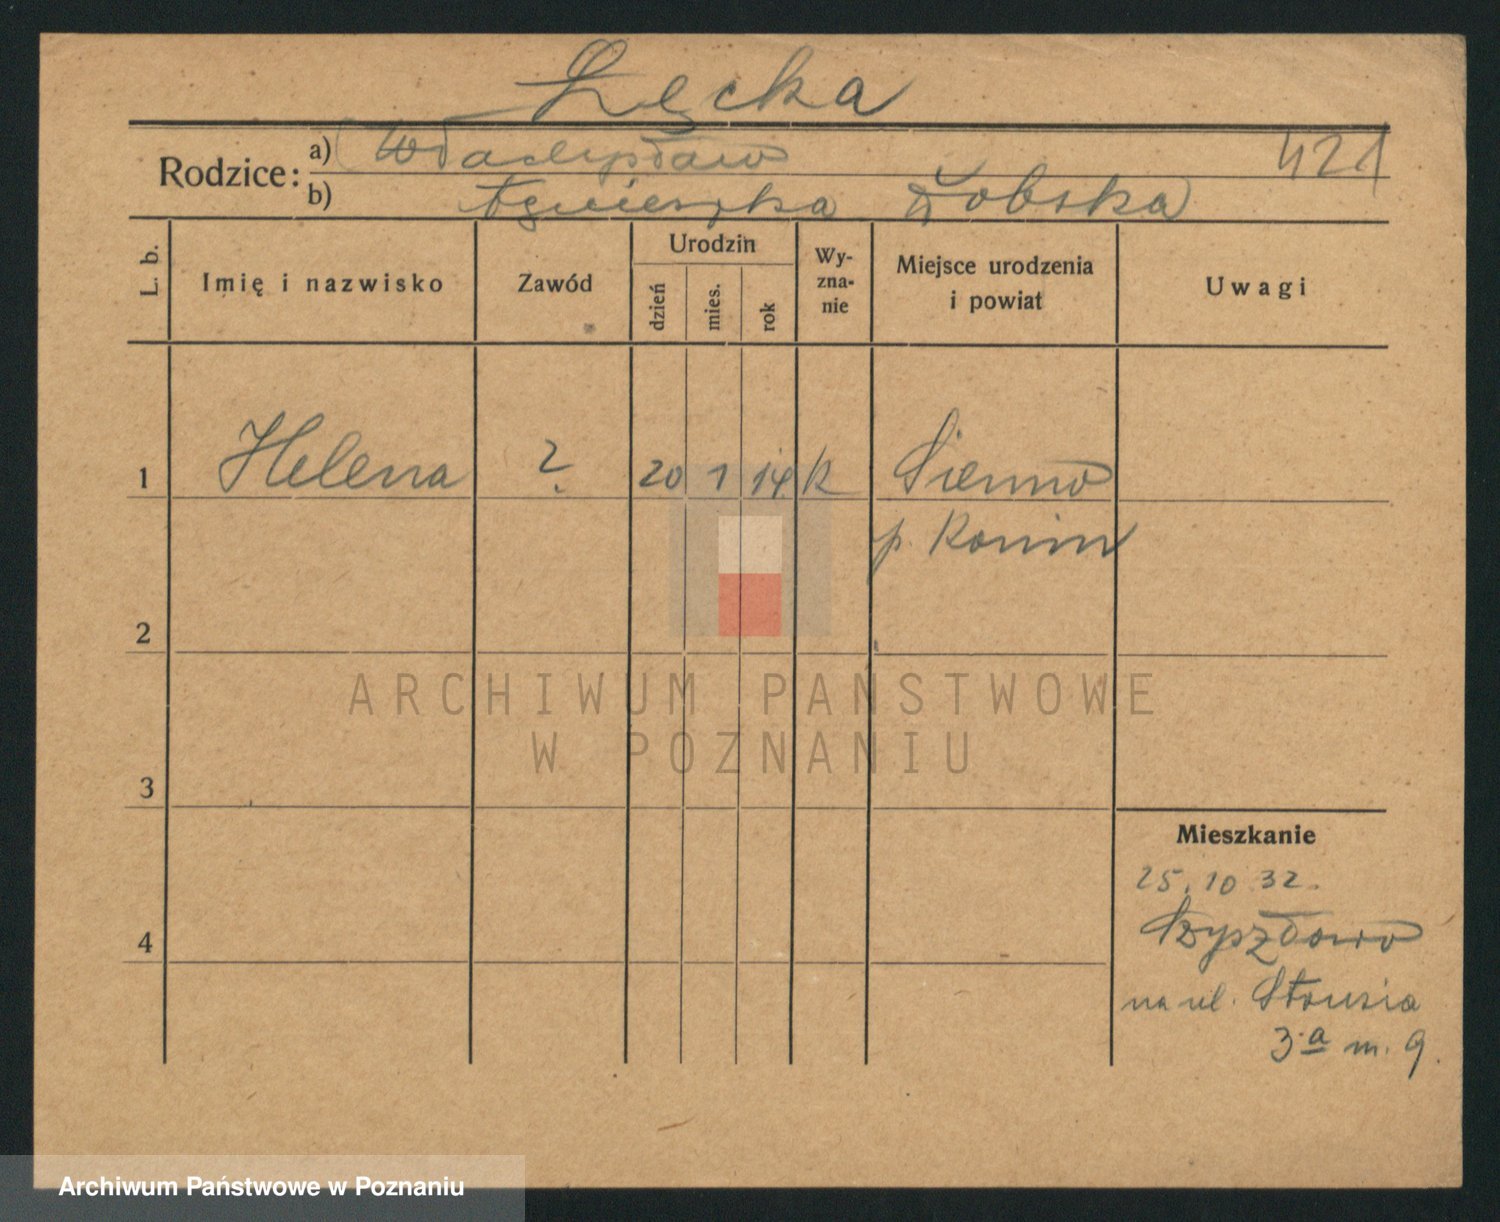 Łęcka
Rodzice:
a) Władysław 421
b) Agnieszka Żobska
L. b.
Imię i nazwisko
Zawód
Urodzin
dzień
mies.
rok
Wy-
zna-
nie
Miejsce urodzenia
i powiat
Uwagi
1 Helena ? 20 1 14 k Sienno
p. Konin
2
3
4
Mieszkanie
25.10 32.
na ul.
3a m. 9.
ARCHIWUM PAŃSTWOWE
W POZNANIU
Archiwum Państwowe w Poznaniu